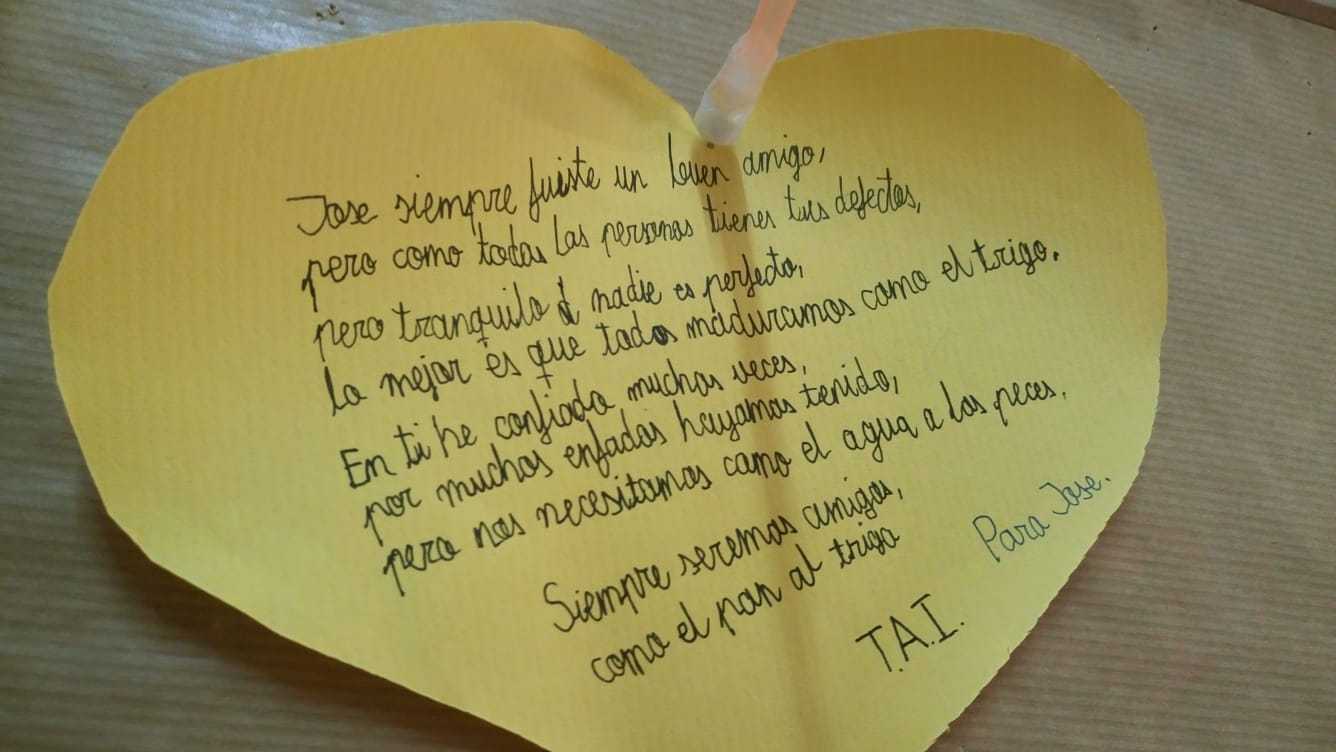 Jose siempre fuiste un buen amigo,
pero como todas las personas tienes tus defectos,
pero tranquilo nadie es perfecto,
lo mejor es que todos maduramos como el trigo.
En ti he confiado muchas veces,
por muchos enfados hayamos tenido,
pero nos necesitamos como el agua a los peces.
Siempre seremos amigos,
como el pan al trigo
Para Jose.
T.A.I.